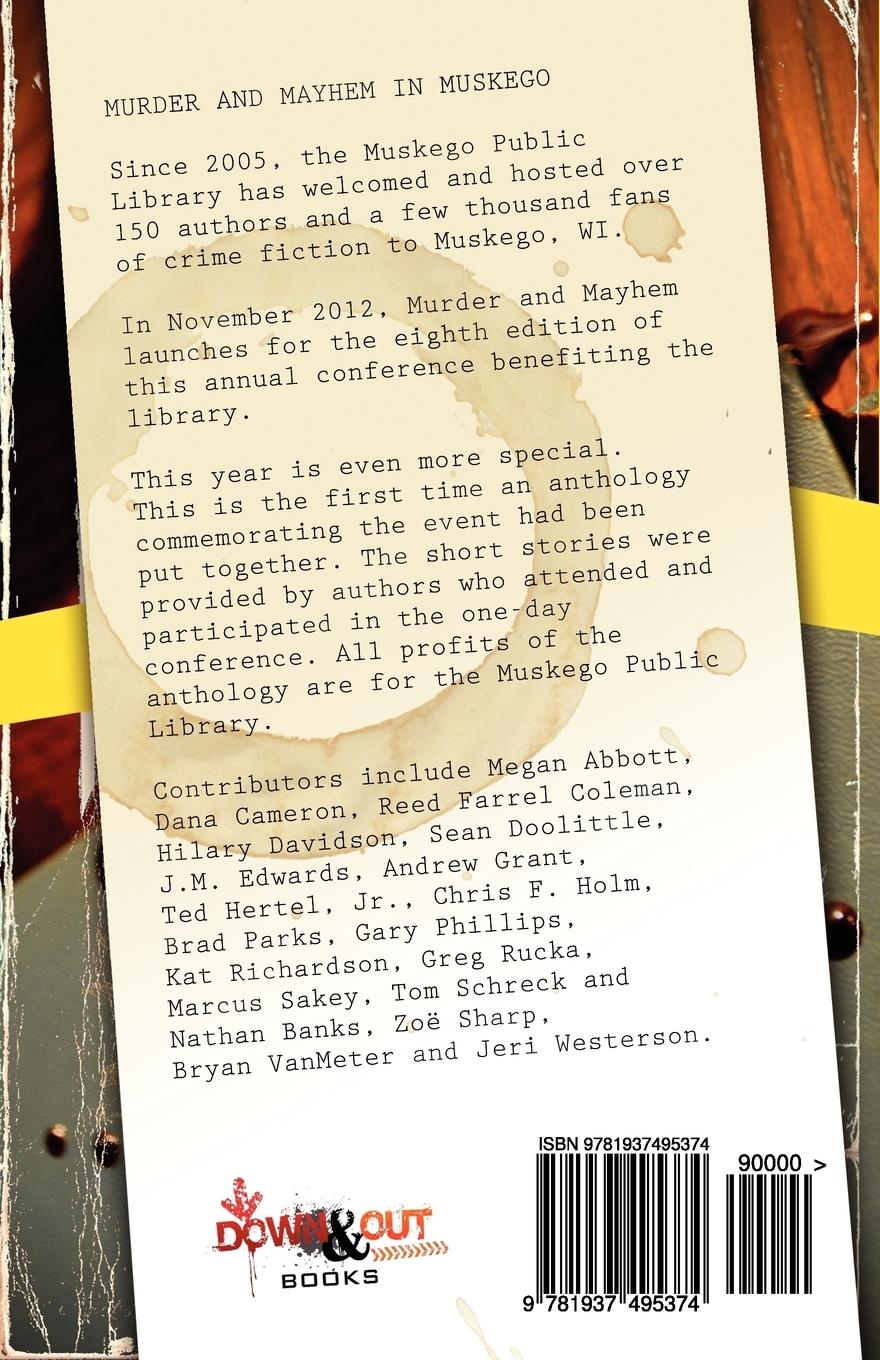 MURDER AND MAYHEM IN MUSKEGO
Since 2005, the Muskego Public
Library has welcomed and hosted over
150 authors and a few thousand fans
of crime fiction to Muskego, WI.
In November 2012, Murder and Mayhem
launches for the eighth edition of
this annual conference benefiting the
library.
This year is even more special.
This is the first time an anthology
commemorating the event had been
put together. The short stories were
provided by authors who attended and
participated in the one-day
conference. All profits of the
anthology are for the Muskego Public
Library.
Contributors include Megan Abbott,
Dana Cameron, Reed Farrel Coleman,
Hilary Davidson, Sean Doolittle,
J.M. Edwards, Andrew Grant,
Ted Hertel, Jr., Chris F. Holm,
Brad Parks, Gary Phillips,
Kat Richardson, Greg Rucka,
Marcus Sakey, Tom Schreck and
Nathan Banks, Zoë Sharp,
Bryan VanMeter and Jeri Westerson.
DOWN & OUT
BOOKS
ISBN 9781937495374
90000 >
9 781937 495374